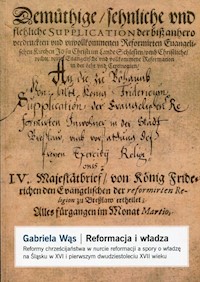 Demüthige / sehnliche vnd
flehliche SVPPLICATION der biß anhero
verdruckten vnd vnvollkommenen Reformirten Evangeli-
schen Kirchen Jesu Christi im Lande Schlesien/vnd Christliche/
An die zu Böhaimb
König Fridericum
Supplication der Evangelischen Re-
formirten Inwohner in der Stadt
Breslaw
freyen Exercity Relig
onis
IV. Majestätbrief/ von König Friede-
richen den Evangelischen der reformirten Re-
ligion zu Breßlaw ertheilet
Alles fürgangen im Monat Martio,
Gabriela Wąs | Reformacja i władza
Reformy chrześcijaństwa w nurcie reformacji a spory o władzę
na Śląsku w XVI i pierwszym dwudziestoleciu XVII wieku